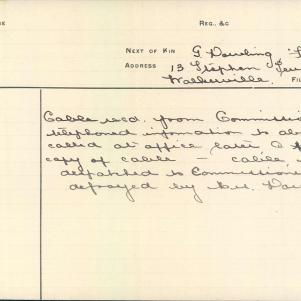 REG., &C
NEXT OF KIN G Dowling
ADDRESS 13 Stephen
Walkerville. FI
Cable recd. from Commissio
telephoned information to ab
called at office later, &
copy of cable — cable
despatched to Commissione
defrayed by Mr.